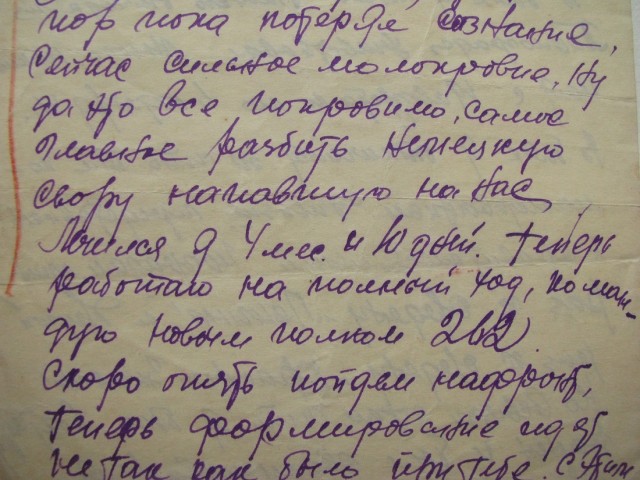 пор пока потеряе сознание,
Сейчас сильное малокровие, ну
да это все попровимо, самое
главное разбить немецкую
свору напавшую на нас
Лечился я 4 мес. и 10 дней. Теперь
работаю на полный ход, коман-
дую новым полком 262.
Скоро опять пойдем на фронт,
теперь формирование идет
не так как было при тебе. С этим